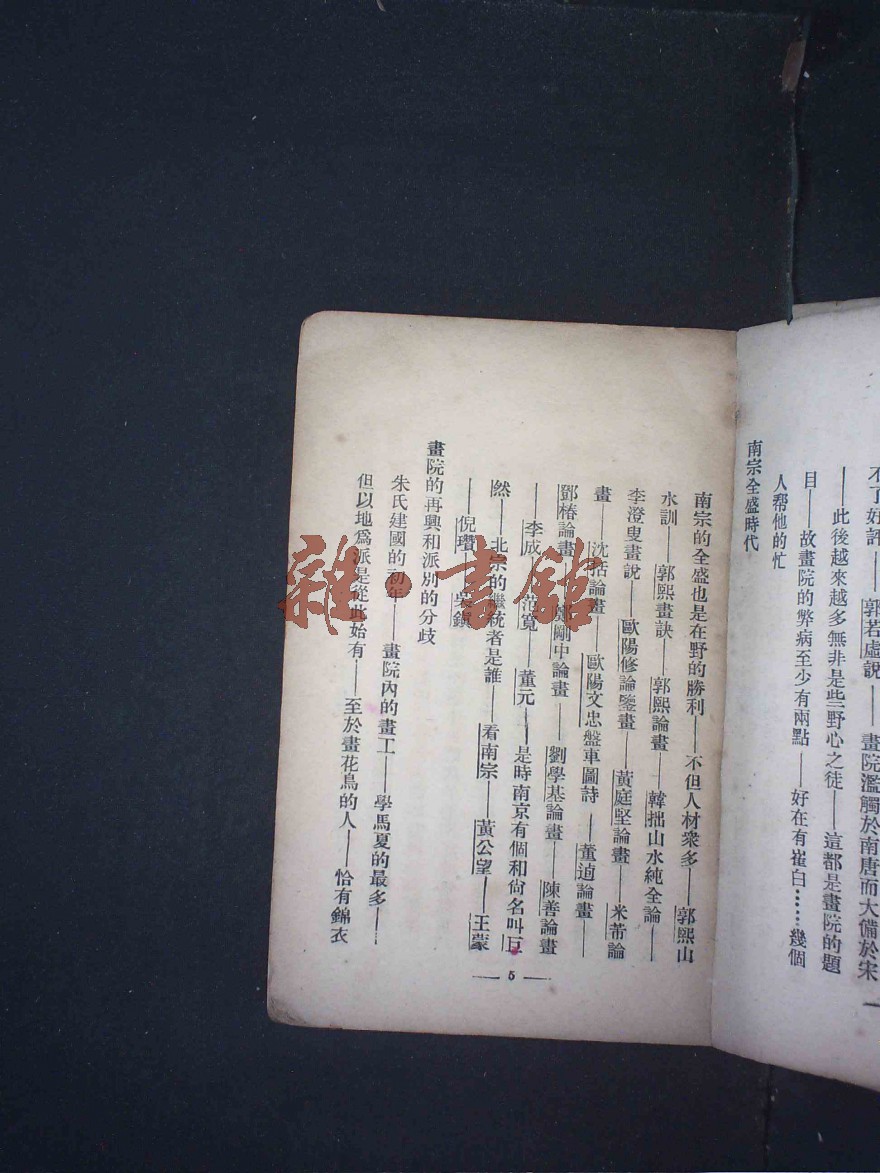 不了好評——郭若虛說——畫院濫觴於南唐而大備於宋
——此後越來越多無非是些野心之徒——這都是畫院的題
目——故畫院的弊病至少有兩點——好在有崔白……幾個
人帮他的忙
南宗全盛時代
南宗的全盛也是在野的勝利——不但人材衆多——郭熙山
水訓——郭熙畫訣——郭熙論畫——韓拙山水純全論——
李澄叟畫說——歐陽修論鑒畫——黃庭堅論畫——米芾論
畫——沈括論畫——歐陽文忠盤車圖詩——董逌論畫——
鄧椿論畫——鄭剛中論畫——劉學基論畫——陳善論畫
——李成——范寬——董元——是時南京有個和尙名叫巨
然——北宗的繼統者是誰——看南宗——黃公望——王蒙
——倪瓚——吳鎭
畫院的再興和派別的分歧
朱氏建國的初年——畫院內的畫工——學馬夏的最多——
但以地爲派是從此始有——至於畫花鳥的人——恰有錦衣
— 5 —
雜·書館